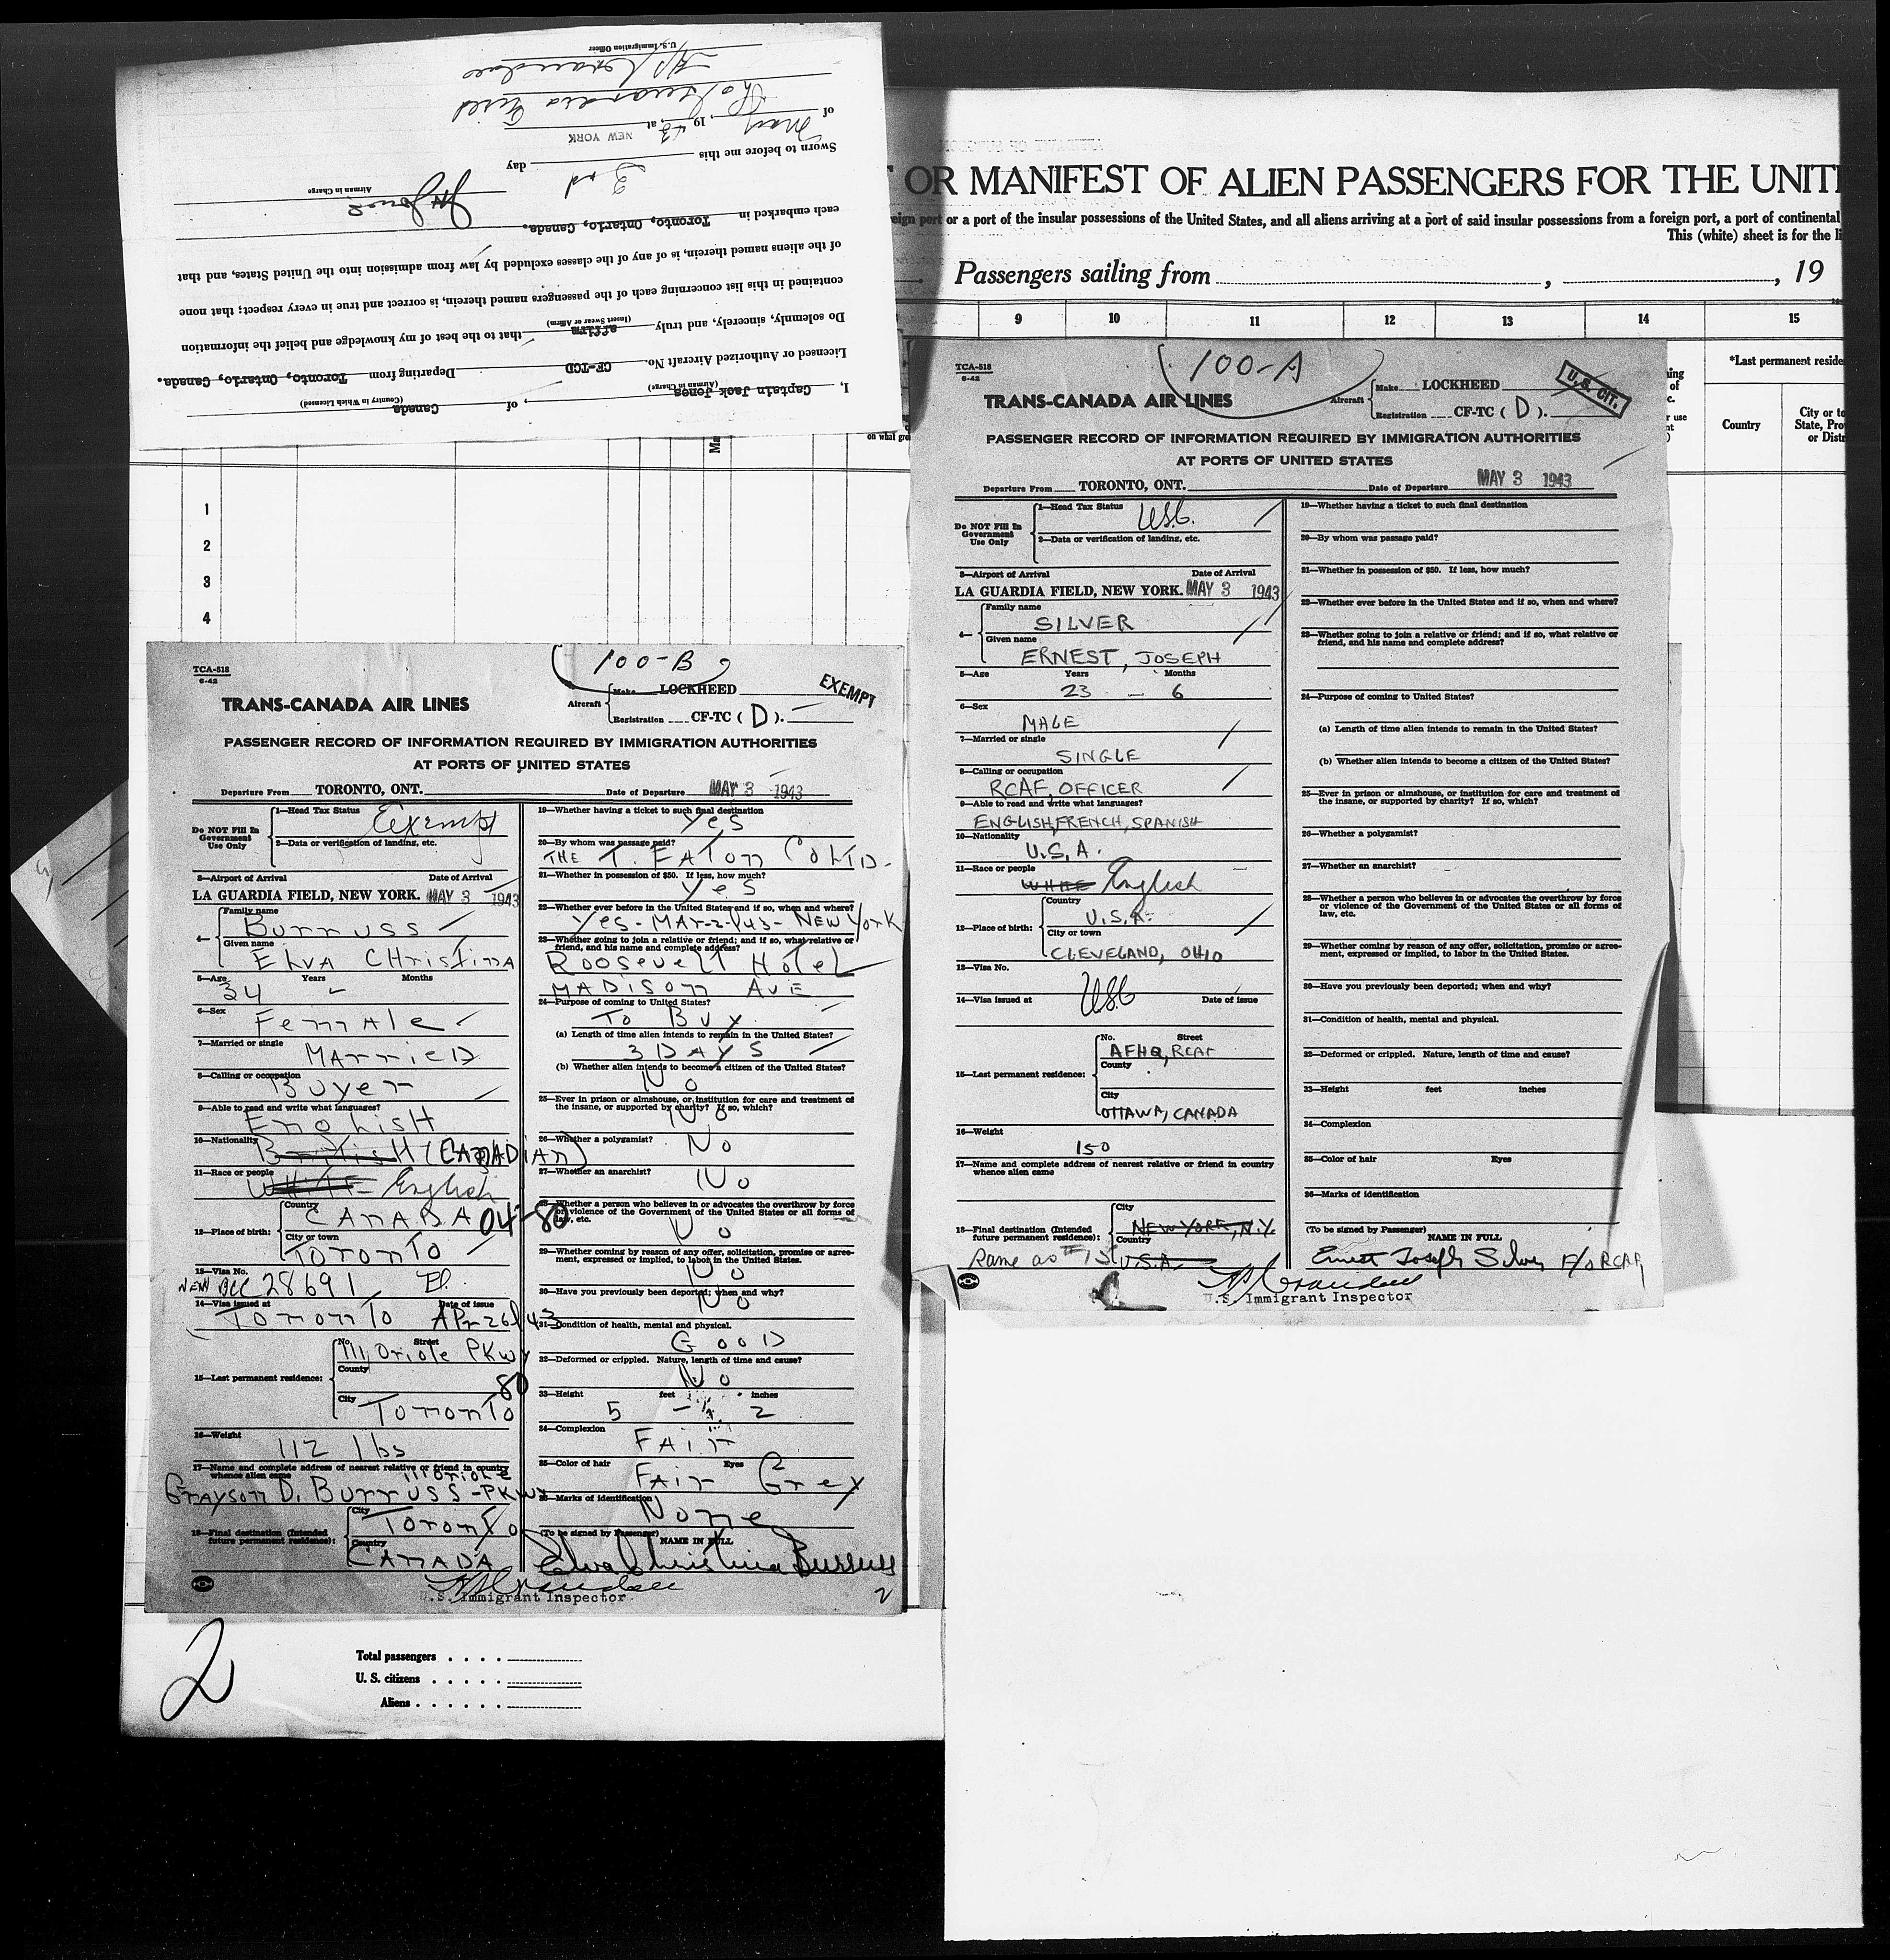 I, Captain Jack Jones, of Canada
(Airman in Charge) (Country in Which Licensed)
Licensed or Authorized Aircraft No. CF-TCD Departing from Toronto, Ontario, Canada.
Do solemnly, sincerely, and truly affirm that to the best of my knowledge and belief the information
(Insert Swear or Affirm)
contained in this list concerning each of the passengers named therein, is correct and true in every respect; that none
of the aliens named therein, is of any of the classes excluded by law from admission into the United States, and that
each embarked in Toronto, Ontario, Canada.
Airman in Charge
Sworn to before me this 3rd day
of May, 1943, at NEW YORK
U.S. Immigration Officer
OR MANIFEST OF ALIEN PASSENGERS FOR THE UNIT
eign port or a port of the insular possessions of the United States, and all aliens arriving at a port of said insular possessions from a foreign port, a port of continental
This (white) sheet is for the li
Passengers sailing from , 19
9 10 11 12 13 14 15
*Last permanent reside
Country
City or to
State, Prov
or Distr
1
2
3
4
100-A
TCA-518
6-42
TRANS-CANADA AIR LINES
Aircraft
Make LOCKHEED
Registration CF-TC ( D ).
U.S. CIT.
PASSENGER RECORD OF INFORMATION REQUIRED BY IMMIGRATION AUTHORITIES
AT PORTS OF UNITED STATES
Departure From TORONTO, ONT. Date of Departure MAY 3 1943
Do NOT Fill In
Government
Use Only
1—Head Tax Status USC.
2—Data or verification of landing, etc.
3—Airport of Arrival Date of Arrival
LA GUARDIA FIELD, NEW YORK. MAY 3 1943
4—
Family name
SILVER
Given name
ERNEST, JOSEPH
5—Age Years Months
23 – 6
6—Sex
MALE
7—Married or single
SINGLE
8—Calling or occupation
RCAF, OFFICER
9—Able to read and write what languages?
ENGLISH, FRENCH, SPANISH
10—Nationality
U.S.A.
11—Race or people
WHITE English
12—Place of birth:
Country
U.S.A.
City or town
CLEVELAND, OHIO
13—Visa No.
14—Visa issued at USC Date of issue
15—Last permanent residence:
No. Street
AFHQ, RCAF
County
City
OTTAWA, CANADA
16—Weight
150
17—Name and complete address of nearest relative or friend in country
whence alien came
18—Final destination (Intended
future permanent residence):
City
NEW YORK, N.Y.
Country
U.S.A.
Same as #15
19—Whether having a ticket to such final destination
20—By whom was passage paid?
21—Whether in possession of $50. If less, how much?
22—Whether ever before in the United States and if so, when and where?
23—Whether going to join a relative or friend; and if so, what relative or
friend, and his name and complete address?
24—Purpose of coming to United States?
(a) Length of time alien intends to remain in the United States?
(b) Whether alien intends to become a citizen of the United States?
25—Ever in prison or almshouse, or institution for care and treatment of
the insane, or supported by charity? If so, which?
26—Whether a polygamist?
27—Whether an anarchist?
28—Whether a person who believes in or advocates the overthrow by force
or violence of the Government of the United States or all forms of
law, etc.
29—Whether coming by reason of any offer, solicitation, promise or agree-
ment, expressed or implied, to labor in the United States.
30—Have you previously been deported; when and why?
31—Condition of health, mental and physical.
32—Deformed or crippled. Nature, length of time and cause?
33—Height feet inches
34—Complexion
35—Color of hair Eyes
36—Marks of identification
(To be signed by Passenger)
NAME IN FULL
Ernest Joseph Silver F/O RCAF
U.S. Immigrant Inspector
100-B
TCA-518
6-42
TRANS-CANADA AIR LINES
Aircraft
Make LOCKHEED
Registration CF-TC ( D ).
EXEMPT
PASSENGER RECORD OF INFORMATION REQUIRED BY IMMIGRATION AUTHORITIES
AT PORTS OF UNITED STATES
Departure From TORONTO, ONT. Date of Departure MAY 3 1943
Do NOT Fill In
Government
Use Only
1—Head Tax Status Exempt
2—Data or verification of landing, etc.
3—Airport of Arrival Date of Arrival
LA GUARDIA FIELD, NEW YORK. MAY 3 1943
4—
Family name
Burruss
Given name
Elva Christina
5—Age Years Months
34
6—Sex
Female
7—Married or single
Married
8—Calling or occupation
Buyer
9—Able to read and write what languages?
English
10—Nationality
British (CANADIAN)
11—Race or people
WHITE English
12—Place of birth:
Country
CANADA 04-80
City or town
Toronto
13—Visa No.
NEW BCC 28691
14—Visa issued at Date of issue
Toronto Apr 26/43
15—Last permanent residence:
No. Street
111 Oriole Pkwy
County
80
City
Toronto
16—Weight
112 lbs
17—Name and complete address of nearest relative or friend in country
whence alien came 111 Oriole
Grayson D. Burruss - PKwy
18—Final destination (Intended
future permanent residence):
City
Toronto
Country
CANADA
19—Whether having a ticket to such final destination
Yes
20—By whom was passage paid?
THE T. EATON CO LTD.
21—Whether in possession of $50. If less, how much?
Yes
22—Whether ever before in the United States and if so, when and where?
Yes - Mar-2-/43 - New York
23—Whether going to join a relative or friend; and if so, what relative or
friend, and his name and complete address?
Roosevelt Hotel
MADISON AVE
24—Purpose of coming to United States?
To Buy
(a) Length of time alien intends to remain in the United States?
3 DAYS
(b) Whether alien intends to become a citizen of the United States?
No
25—Ever in prison or almshouse, or institution for care and treatment of
the insane, or supported by charity? If so, which?
No
26—Whether a polygamist? No
27—Whether an anarchist? No
28—Whether a person who believes in or advocates the overthrow by force
or violence of the Government of the United States or all forms of
law, etc.
No
29—Whether coming by reason of any offer, solicitation, promise or agree-
ment, expressed or implied, to labor in the United States.
No
30—Have you previously been deported; when and why?
No
31—Condition of health, mental and physical.
Good
32—Deformed or crippled. Nature, length of time and cause?
No
33—Height feet inches
5 – 2
34—Complexion
Fair
35—Color of hair Eyes
Fair Grey
36—Marks of identification
None
(To be signed by Passenger)
NAME IN FULL
Elva Christina Burruss
U.S. Immigrant Inspector
2
2
Total passengers
U. S. citizens
Aliens